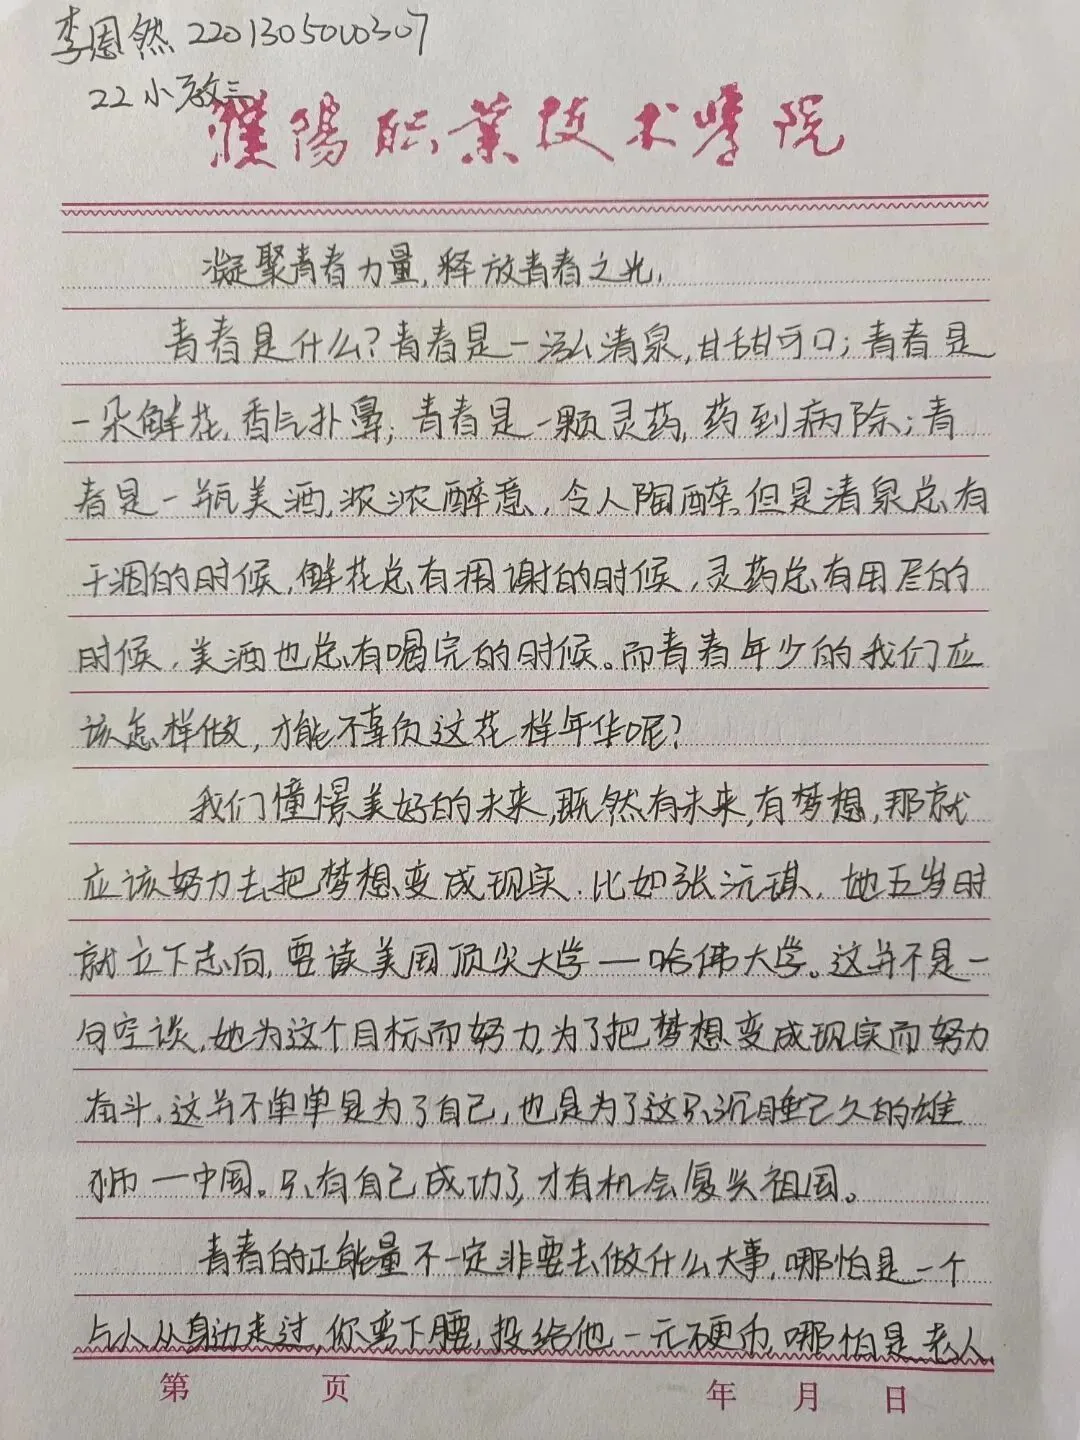 李恩然 2201305000307
22小教三
濮陽职業技术學院
凝聚青春力量,释放青春之光.
青春是什么?青春是一泓清泉,甘甜可口;青春是
一朵鲜花,香气扑鼻;青春是一颗灵药,药到病除;青
春是一瓶美酒,浓浓醉意,令人陶醉。但是清泉总有
干涸的时候,鲜花总有凋谢的时候,灵药总有用尽的
时候,美酒也总有喝完的时候。而青春年少的我们应
该怎样做,才能不辜负这花样年华呢?
我们憧憬美好的未来,既然有未来,有梦想,那就
应该努力去把梦想变成现实.比如张沅琪,她五岁时
就立下志向,要读美国顶尖大学—哈佛大学。这并不是一
句空谈,她为这个目标而努力,为了把梦想变成现实而努力
奋斗.这并不单单是为了自己,也是为了这只沉睡已久的雄
狮—中国。只有自己成功了,才有机会复兴祖国。
青春的正能量不一定非要去做什么大事,哪怕是一个
乞人从身边走过,你弯下腰,投给他一元硬币,哪怕是老人
第 页 年 月 日